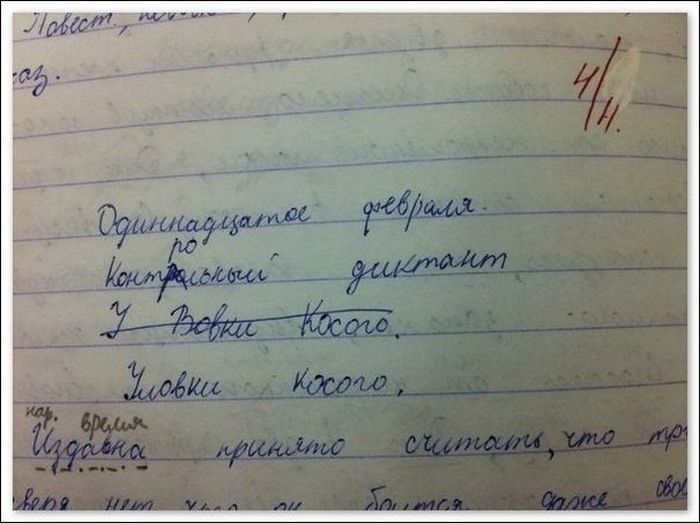 Повест
каз.
4/4.
Одиннадцатое февраля.
ро
Контрольный диктант
У Вовки Косого.
Уловки Косого.
нар. время
Издавна принято считать, что тр
зверя нет, что он боится даже сво